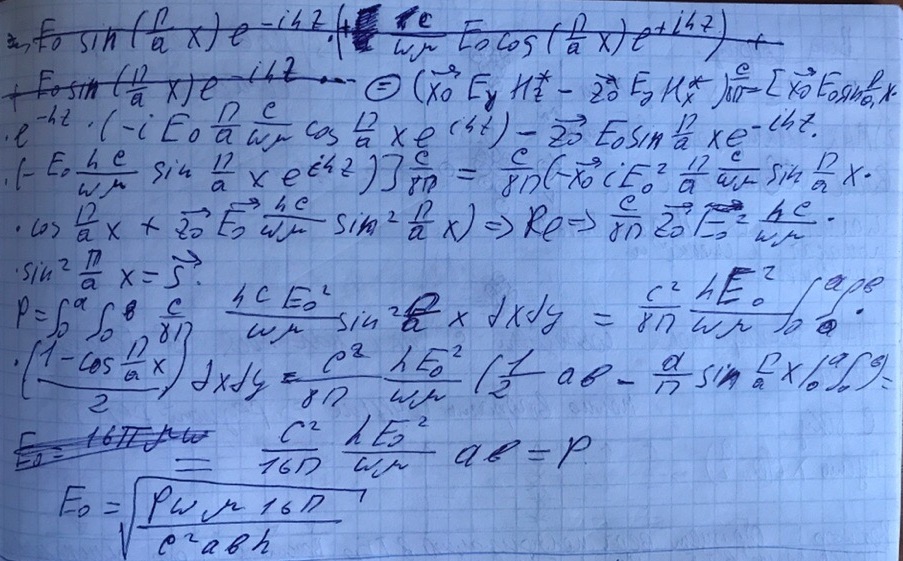 E₀ sin(π/a x) e^{-ihz} · ( hc/ωμ E₀ cos(π/a x) e^{+ihz}) +
+ E₀ sin(π/a x) e^{-ihz} ... ⊜ (x⃗₀ E_y H_z^* - z⃗₀ E_y H_x^*) c/8π = [x⃗₀ E₀ sin π/a x ·
· e^{-hz} · (-i E₀ π/a c/ωμ cos π/a x e^{ihz}) - z⃗₀ E₀ sin π/a x e^{-ihz} ·
· (- E₀ hc/ωμ sin π/a x e^{ihz})] c/8π = c/8π (-x⃗₀ i E₀² π/a c/ωμ sin π/a x ·
· cos π/a x + z⃗₀ E⃗₀ hc/ωμ sin² π/a x) => Re => c/8π z⃗₀ E₀² hc/ωμ ·
· sin² π/a x = S⃗.
P = ∫₀^a ∫₀^в c/8π hc E₀²/ωμ sin² π/a x dxdy = c²/8π hE₀²/ωμ ∫₀^a ∫₀^в ·
· (1 - cos π/a x / 2) dxdy = c²/8π hE₀²/ωμ (1/2 aв - a/π sin π/a x |₀^a |₀^в) =
= c²/16π hE₀²/ωμ aв = P
E₀ = √(Pωμ 16π / c² aвh)